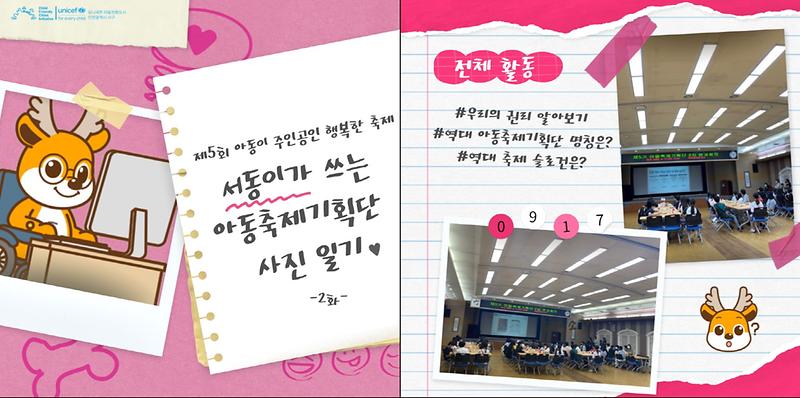 Child Friendly Cities Initiative
unicef
for every child
유니세프 아동친화도시
인천광역시 서구
제5회 아동이 주인공인 행복한 축제
서동이가 쓰는
아동축제기획단
사진 일기♥
-2화-
전체 활동
#우리의 권리 알아보기
#역대 아동축제기획단 명칭은?
#역대 축제 슬로건은?
0 9 1 7
?